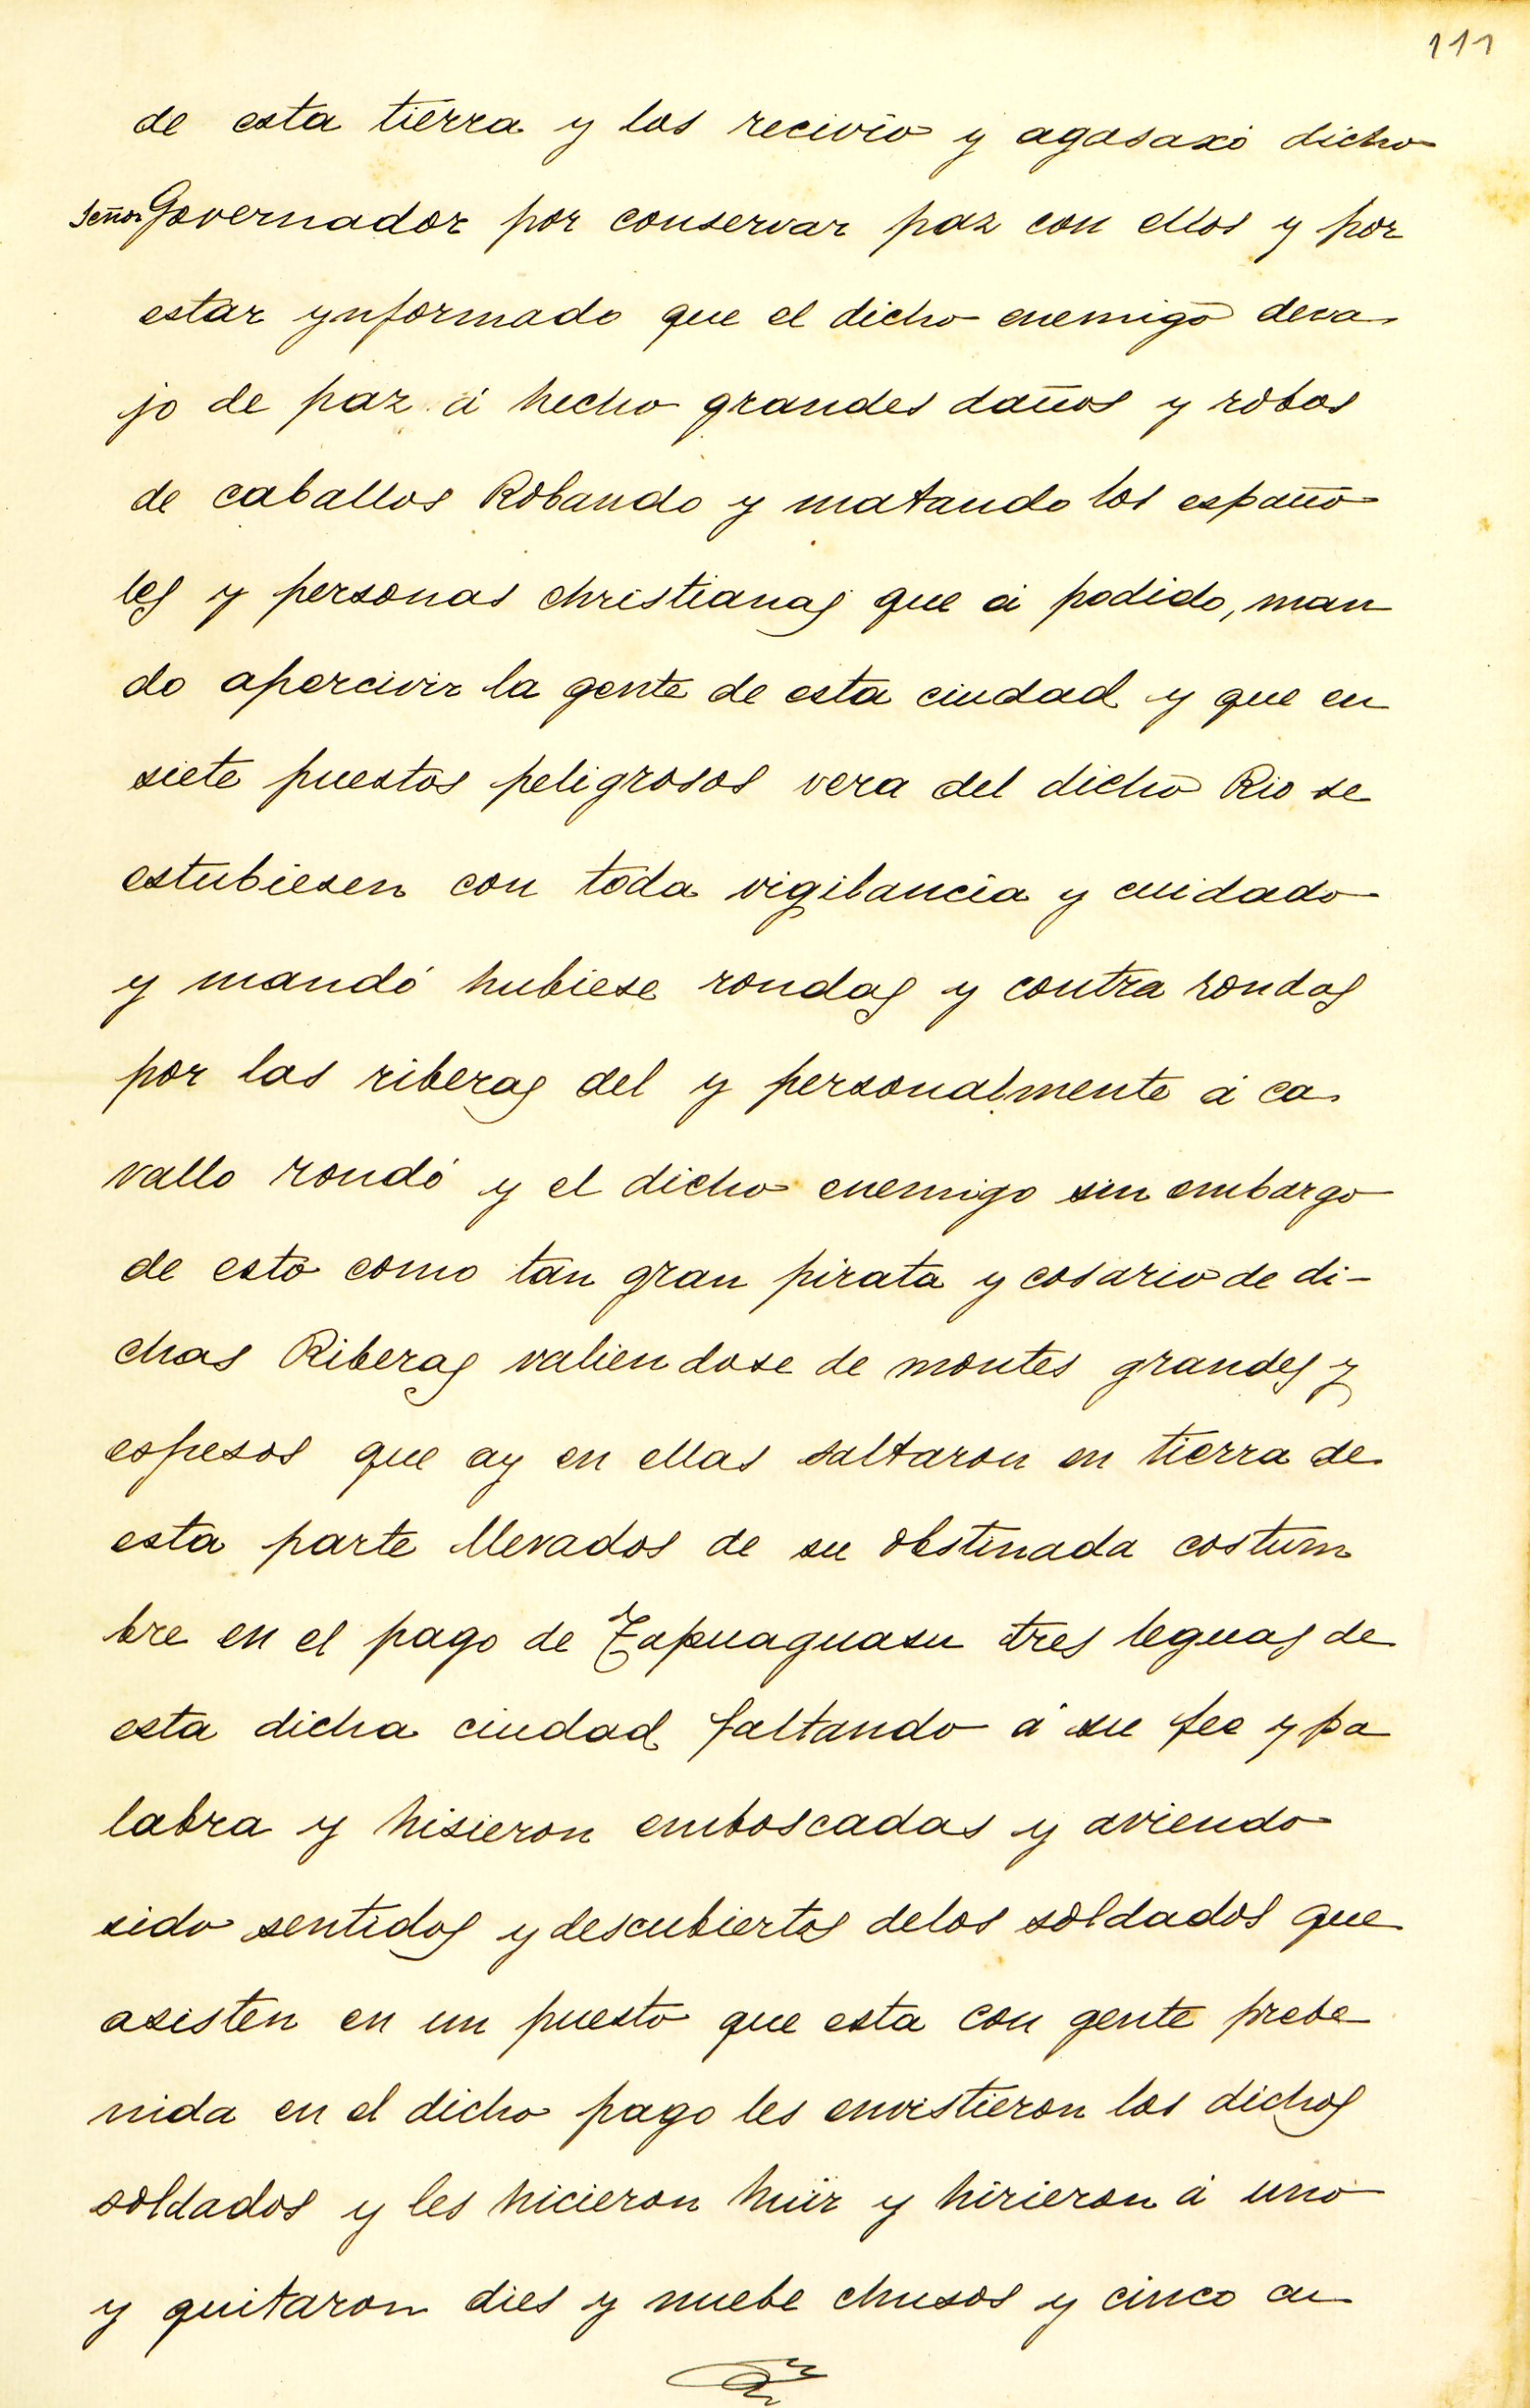 111
de esta tierra y los recivio y agasaxó dicho
señor Governador por conservar paz con ellos y por
estar ynformado que el dicho enemigo deva
jo de paz á hecho grandes daños y robos
de caballos Robando y matando los españo
les y personas christianas que á podido, man
do apercivir la gente de esta ciudad y que en
siete puestos peligrosos vera del dicho Rio se
estubiesen con toda vigilancia y cuidado
y mandó hubiese rondas y contra rondas
por las riberas del y personalmente á ca
vallo rondó y el dicho enemigo sin embargo
de esto como tan gran pirata y cosario de di-
chas Riberas valiendose de montes grandes y
espesos que ay en ellas saltaron en tierra de
esta parte llevados de su obstinada costum
bre en el pago de Tapuaguasu tres leguas de
esta dicha ciudad faltando á su fee y pa
labra y hisieron emboscadas y aviendo
sido sentidos y descubiertos delos soldados que
asisten en un puesto que esta con gente prebe
nida en el dicho pago les envistieron los dichos
soldados y les hicieron huir y hirieron á uno
y quitaron dies y nuebe chusos y cinco cu